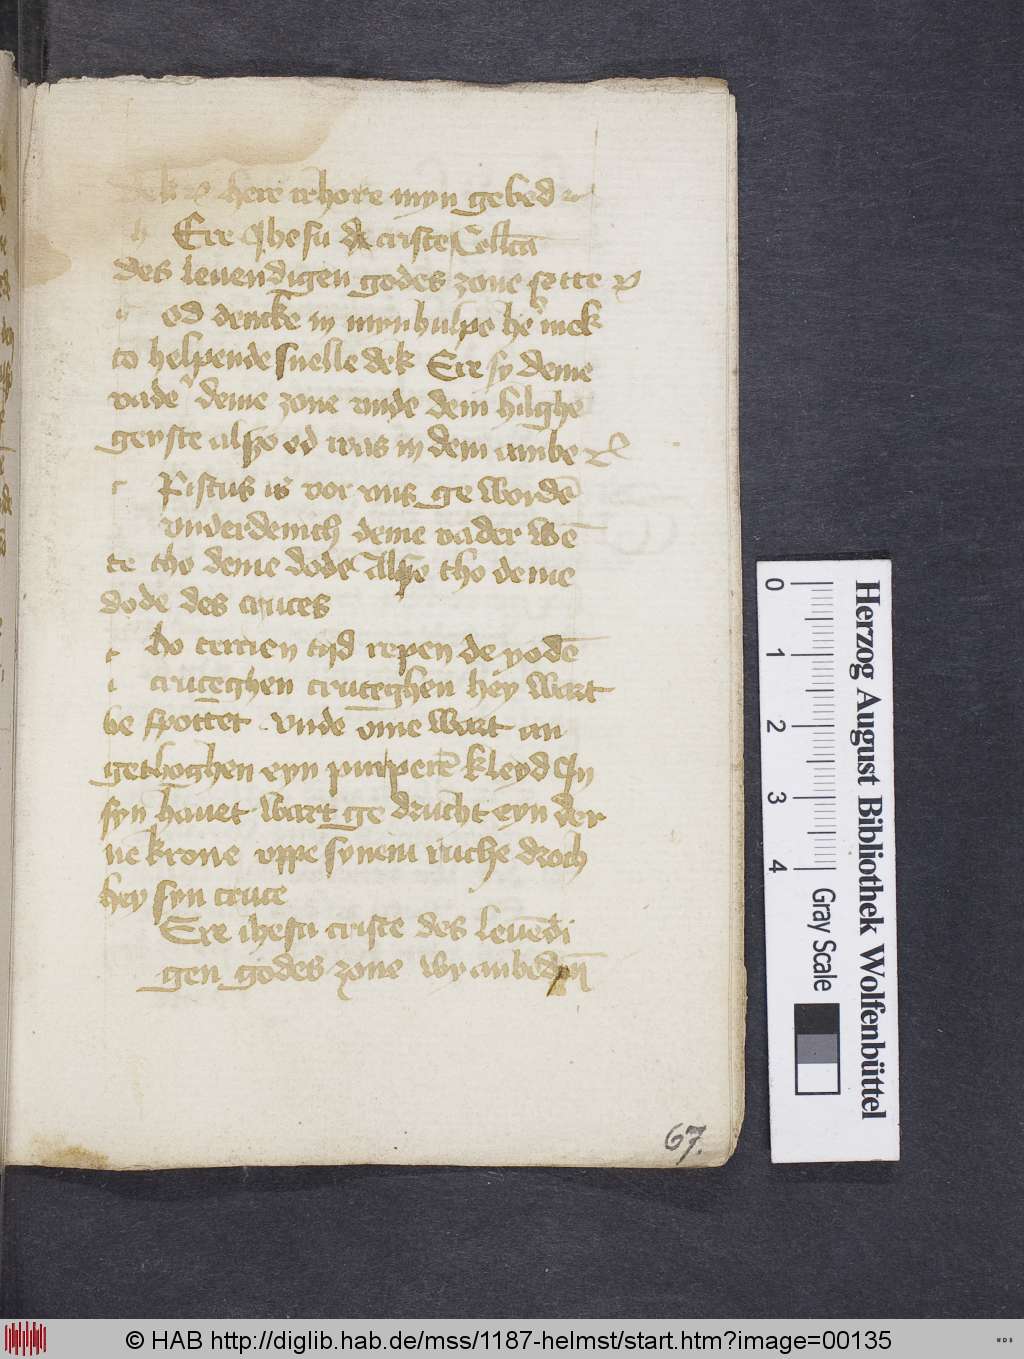 dek here irhore myn gebed
h Ere Jhesu criste Collcā
des leuendigen godes zone sette
g od dencke in myn hulpe he mek
to helpende snelle dek Ere sy deme
vade deme zone vnde dem hilghē
geyste alszo od was in dem anbe
c Ristus is vor vns ge wordē
vnderdenich deme vader wē
te tho deme dode Alszo tho deme
dode des cruces
t ho tercien tijd repen de yodē
i cruceghen cruceghen hey wart
be spottet vnde ome wart an
gethoghen eyn purperē kleyd In
syn hauet wart ge drucht eyn dor
ne krone vppe synem ruche droch
hey syn cruce
Ere ihesu criste des leuēdi
gen godes zone wy anbed
67.
0 1 2 3 4
Herzog August Bibliothek Wolfenbüttel
Gray Scale
© HAB http://diglib.hab.de/mss/1187-helmst/start.htm?image=00135
WDB